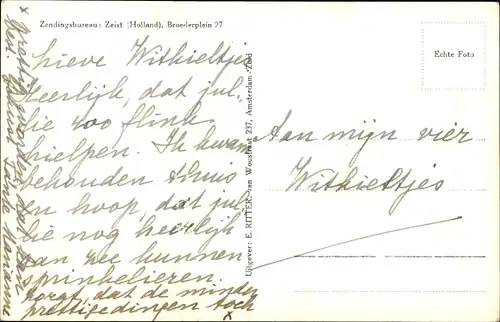 Zendingsbureau: Zeist (Holland), Broederplein 27
Lieve Witkieltjes
Heerlijk, dat jul-
lie zoo flink
hielpen. Ik kwam
behouden thuis
en hoop, dat jul
lie nog heerlijk
aan zee kunnen
sprinkelieren.
Zorgt, dat de minder
prettige dingen toch
x
x
worden, dat kan
best.
Tante Marianne
Uitgever: E. RITTER, van Woustraat 237, Amsterdam-Zuid
Echte Foto
Aan mijn vier
Witkieltjes